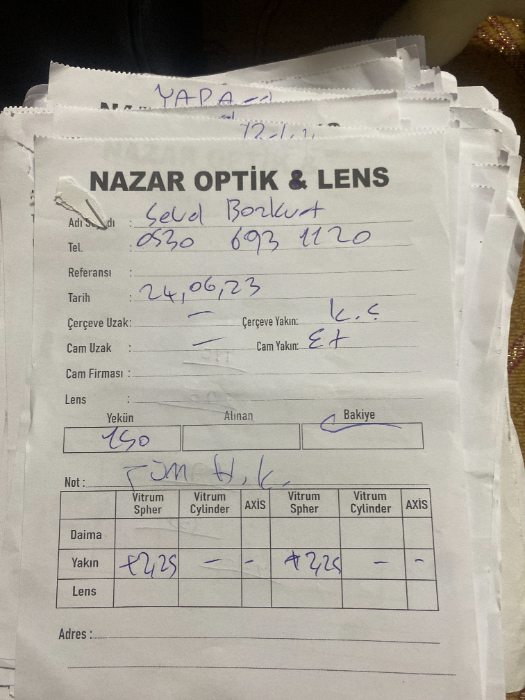 YAPA
12.1.
NAZAR OPTİK & LENS
Adı Soyadı : Selul Bozkurt
Tel. : 0530 693 1120
Referansı :
Tarih : 24,06,23
Çerçeve Uzak: — Çerçeve Yakın: K.Ç
Cam Uzak : — Cam Yakın: Ex
Cam Firması :
Lens :
Yekün Alınan Bakiye
150
Not : Tüm H.K.
Vitrum Spher Vitrum Cylinder AXİS Vitrum Spher Vitrum Cylinder AXİS
Daima
Yakın +2,25 — - +2,25 — -
Lens
Adres :